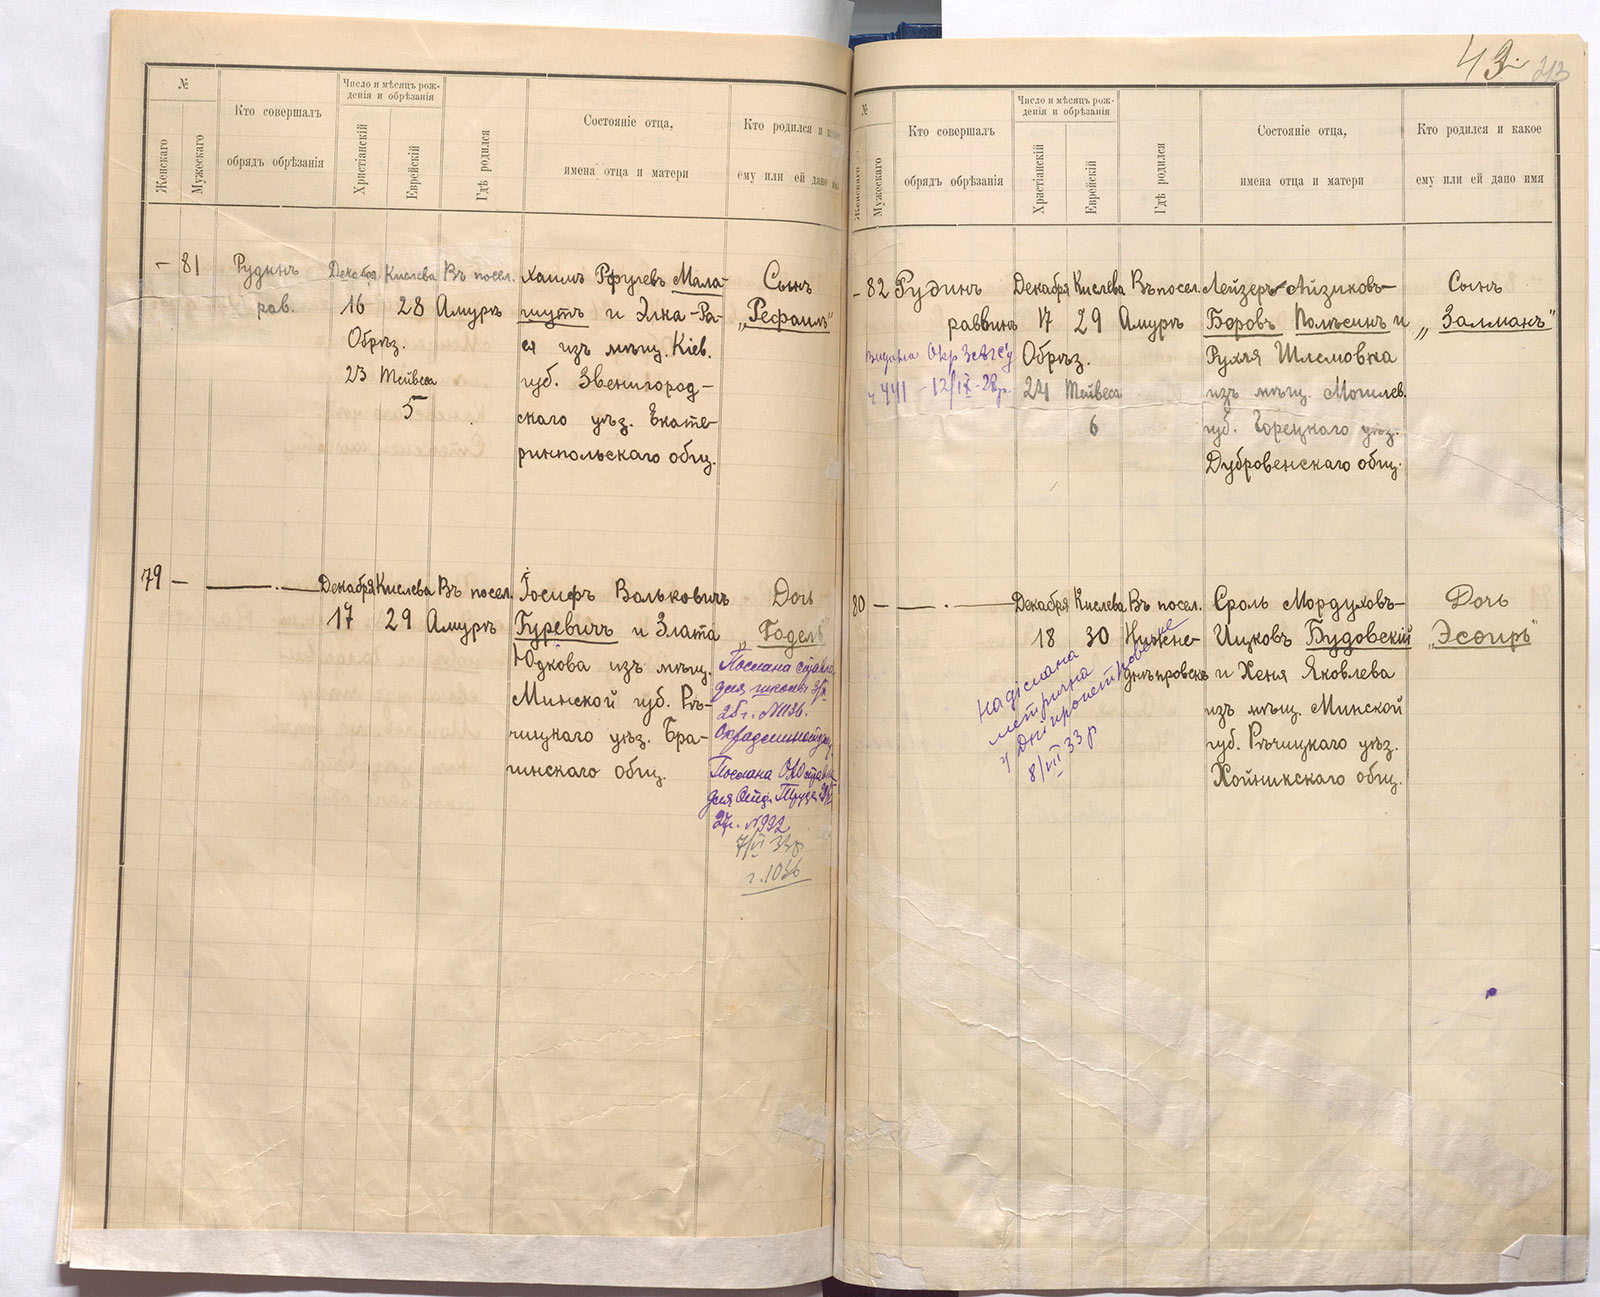 №
Женскаго
Мужескаго
Кто совершалъ
обрядъ обрѣзанія
Число и мѣсяцъ рож-
денія и обрѣзанія
Христіанскій
Еврейскій
Гдѣ родился
Состояніе отца,
имена отца и матери
Кто родился и како
ему или ей дано
— 81
Рудинъ
рав.
Декабря
16
Обрѣз.
23
Кислева
28
Тейвеса
5
Въ посел.
Амуръ
Хаимъ Рфулевъ Мала-
шутъ и Элка-Ра-
ся изъ мѣщ. Кіев.
губ. Звенигород-
скаго уѣз. Екате-
ринпольскаго общ.
Сынъ
„Рефаилъ"
79 —
Декабря
17
Кислева
29
Въ посел.
Амуръ
Іосифъ Вальковичъ
Гуревичъ и Злата
Юдкова изъ мѣщ.
Минской губ. Рѣ-
чицкаго уѣз. Бра-
гинскаго общ.
Дочь
„Годель"
Послана
для школы
25г. №1136.
Послана
для Труда
27г. №992
7/VI 33р
ч.1036
43.
№
Женскаго
Мужескаго
Кто совершалъ
обрядъ обрѣзанія
Число и мѣсяцъ рож-
денія и обрѣзанія
Христіанскій
Еврейскій
Гдѣ родился
Состояніе отца,
имена отца и матери
Кто родился и какое
ему или ей дано имя
— 82
Рудинъ
раввинъ
Видана Окр
ч 441 - 12/IX-28р
Декабря
17
Обрѣз.
24
Кислева
29
Тейвеса
6
Въ посел.
Амуръ
Лейзеръ-Айзиковъ-
Боровъ Полѣсинъ и
Рухля Шлемовна
изъ мѣщ. Могилев.
губ. Горецкаго уѣз.
Дубровенскаго общ.
Сынъ
„Залманъ"
80 —
Декабря
18
Кислева
30
Въ посел.
Нижне-
днѣпровскъ
надіслана
метрична
у Дніпропетровське
8/VII 33р
Сроль Мордуховъ-
Ицковъ Будовскій
и Хеня Яковлева
изъ мѣщ. Минской
губ. Рѣчицкаго уѣз.
Хойникскаго общ.
Дочь
„Эсѳирь"